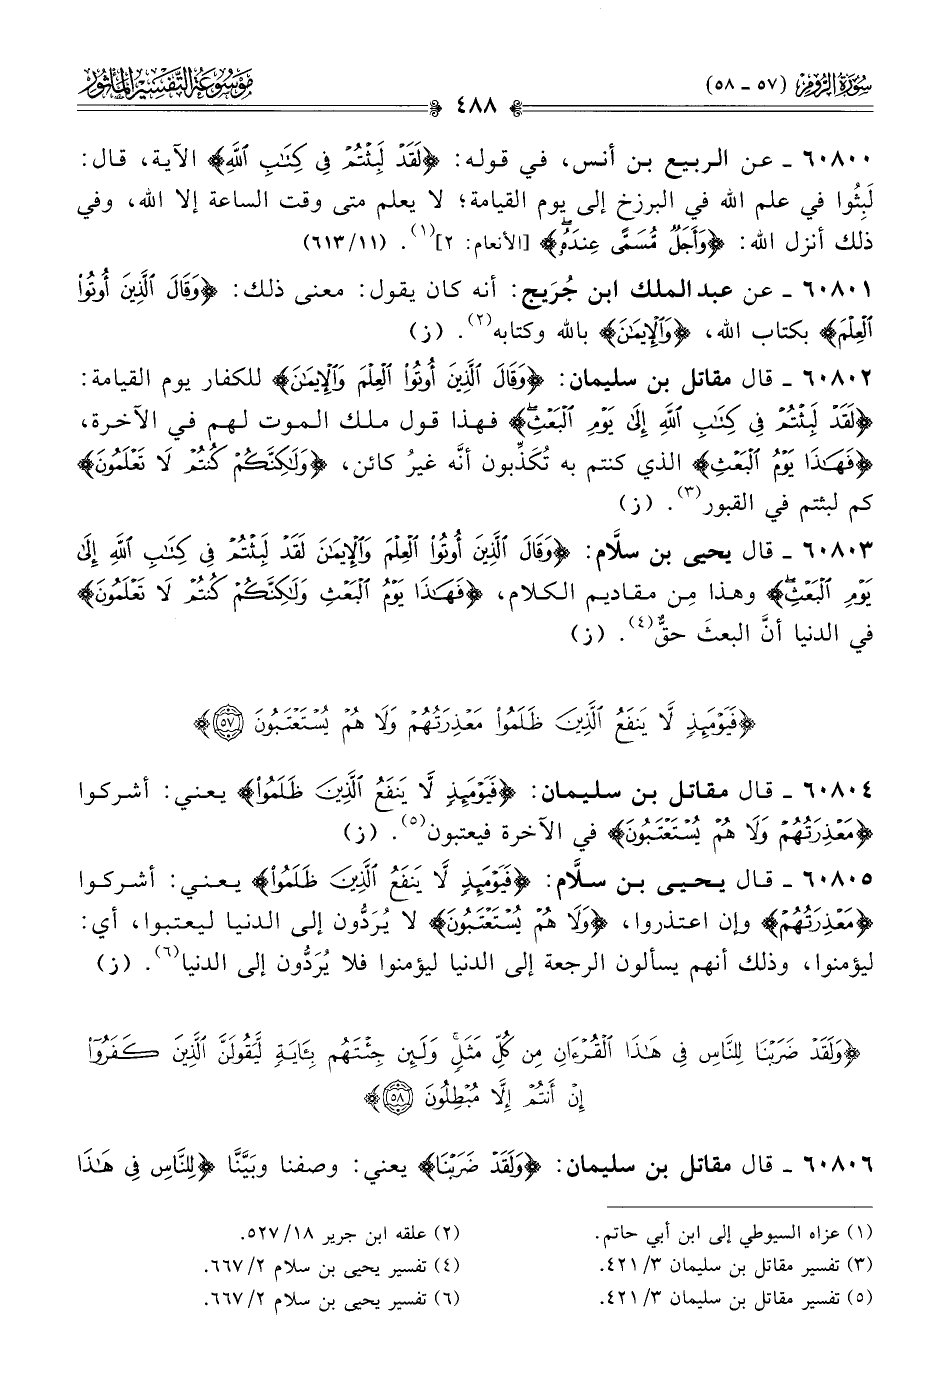 سُورَةُ الرُّومِ (٥٧ - ٥٨)
مَوْسُوعَةُ التَّفْسِيرِ المَأْثُورِ
٤٨٨
٦٠٨٠٠ ـ عن الربيع بن أنس، في قوله: ﴿لَقَدۡ لَبِثۡتُمۡ فِي كِتَٰبِ ٱللَّهِ﴾ الآية، قال:
لَبِثُوا في علم الله في البرزخ إلى يوم القيامة؛ لا يعلم متى وقت الساعة إلا الله، وفي
ذلك أنزل الله: ﴿وَأَجَلٞ مُّسَمًّى عِندَهُۥۖ﴾ [الأنعام: ٢](١). (٦١٣/١١)
٦٠٨٠١ ـ عن عبدالملك ابن جُرَيج: أنه كان يقول: معنى ذلك: ﴿وَقَالَ ٱلَّذِينَ أُوتُواْ
ٱلۡعِلۡمَ﴾ بكتاب الله، ﴿وَٱلۡإِيمَٰنَ﴾ بالله وكتابه(٢). (ز)
٦٠٨٠٢ ـ قال مقاتل بن سليمان: ﴿وَقَالَ ٱلَّذِينَ أُوتُواْ ٱلۡعِلۡمَ وَٱلۡإِيمَٰنَ﴾ للكفار يوم القيامة:
﴿لَقَدۡ لَبِثۡتُمۡ فِي كِتَٰبِ ٱللَّهِ إِلَىٰ يَوۡمِ ٱلۡبَعۡثِۖ﴾ فهذا قول ملك الموت لهم في الآخرة،
﴿فَهَٰذَا يَوۡمُ ٱلۡبَعۡثِ﴾ الذي كنتم به تُكَذِّبون أنَّه غيرُ كائن، ﴿وَلَٰكِنَّكُمۡ كُنتُمۡ لَا تَعۡلَمُونَ﴾
كم لبثتم في القبور(٣). (ز)
٦٠٨٠٣ ـ قال يحيى بن سلَّام: ﴿وَقَالَ ٱلَّذِينَ أُوتُواْ ٱلۡعِلۡمَ وَٱلۡإِيمَٰنَ لَقَدۡ لَبِثۡتُمۡ فِي كِتَٰبِ ٱللَّهِ إِلَىٰ
يَوۡمِ ٱلۡبَعۡثِۖ﴾ وهذا مِن مقاديم الكلام، ﴿فَهَٰذَا يَوۡمُ ٱلۡبَعۡثِ وَلَٰكِنَّكُمۡ كُنتُمۡ لَا تَعۡلَمُونَ﴾
في الدنيا أنَّ البعثَ حقٌّ(٤). (ز)
﴿فَيَوۡمَئِذٖ لَّا يَنفَعُ ٱلَّذِينَ ظَلَمُواْ مَعۡذِرَتُهُمۡ وَلَا هُمۡ يُسۡتَعۡتَبُونَ ٥٧﴾
٦٠٨٠٤ ـ قال مقاتل بن سليمان: ﴿فَيَوۡمَئِذٖ لَّا يَنفَعُ ٱلَّذِينَ ظَلَمُواْ﴾ يعني: أشركوا
﴿مَعۡذِرَتُهُمۡ وَلَا هُمۡ يُسۡتَعۡتَبُونَ﴾ في الآخرة فيعتبون(٥). (ز)
٦٠٨٠٥ ـ قال يحيى بن سلَّام: ﴿فَيَوۡمَئِذٖ لَّا يَنفَعُ ٱلَّذِينَ ظَلَمُواْ﴾ يعني: أشركوا
﴿مَعۡذِرَتُهُمۡ﴾ وإن اعتذروا، ﴿وَلَا هُمۡ يُسۡتَعۡتَبُونَ﴾ لا يُرَدُّون إلى الدنيا ليعتبوا، أي:
ليؤمنوا، وذلك أنهم يسألون الرجعة إلى الدنيا ليؤمنوا فلا يُرَدُّون إلى الدنيا(٦). (ز)
﴿وَلَقَدۡ ضَرَبۡنَا لِلنَّاسِ فِي هَٰذَا ٱلۡقُرۡءَانِ مِن كُلِّ مَثَلٖۚ وَلَئِن جِئۡتَهُم بِـَٔايَةٖ لَّيَقُولَنَّ ٱلَّذِينَ كَفَرُوٓاْ
إِنۡ أَنتُمۡ إِلَّا مُبۡطِلُونَ ٥٨﴾
٦٠٨٠٦ ـ قال مقاتل بن سليمان: ﴿وَلَقَدۡ ضَرَبۡنَا﴾ يعني: وصفنا وبَيَّنَّا ﴿لِلنَّاسِ فِي هَٰذَا
(١) عزاه السيوطي إلى ابن أبي حاتم.
(٢) علقه ابن جرير ١٨/ ٥٢٧.
(٣) تفسير مقاتل بن سليمان ٣/ ٤٢١.
(٤) تفسير يحيى بن سلام ٢/ ٦٦٧.
(٥) تفسير مقاتل بن سليمان ٣/ ٤٢١.
(٦) تفسير يحيى بن سلام ٢/ ٦٦٧.